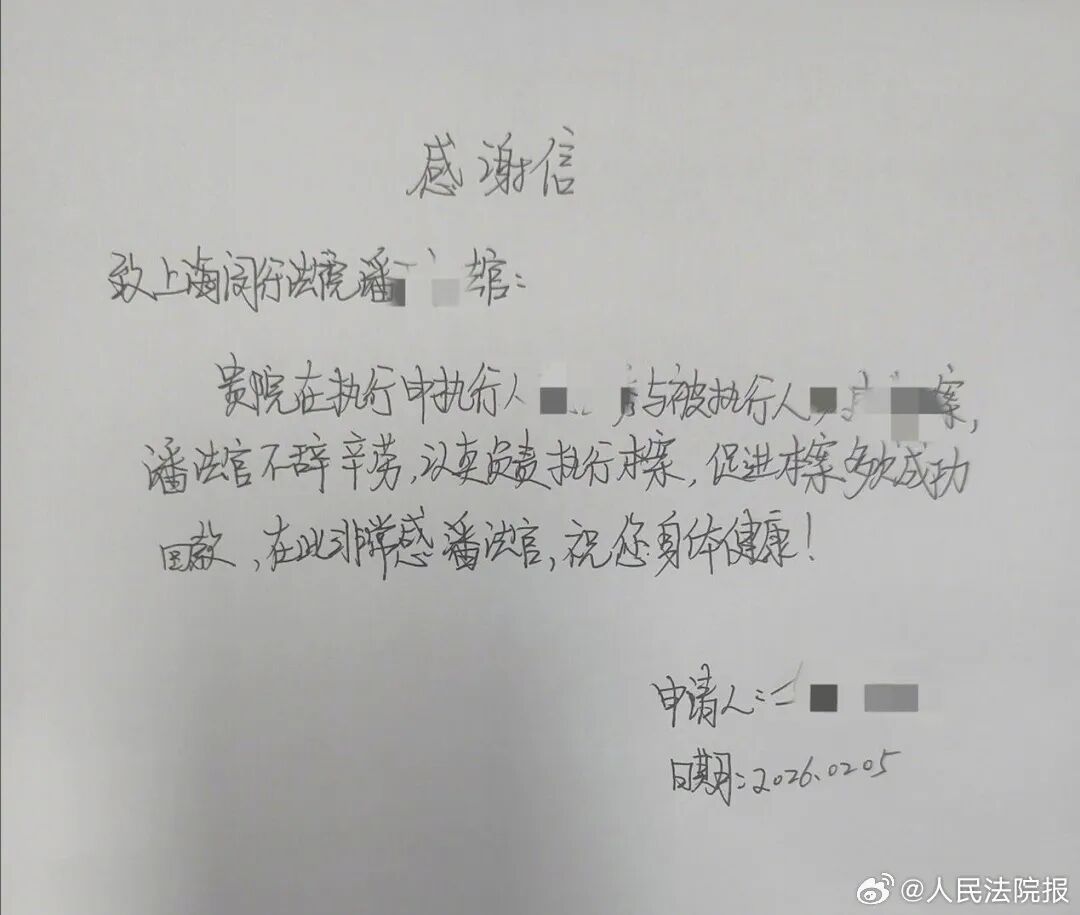 感谢信
致上海闵行法院潘 官：
贵院在执行申执行人 与被执行人 案，
潘法官不辞辛劳，认真负责执行本案，促进本案多次成功
回款，在此非常感潘法官，祝您身体健康！
申请人：
日期：2026.0205
@人民法院报